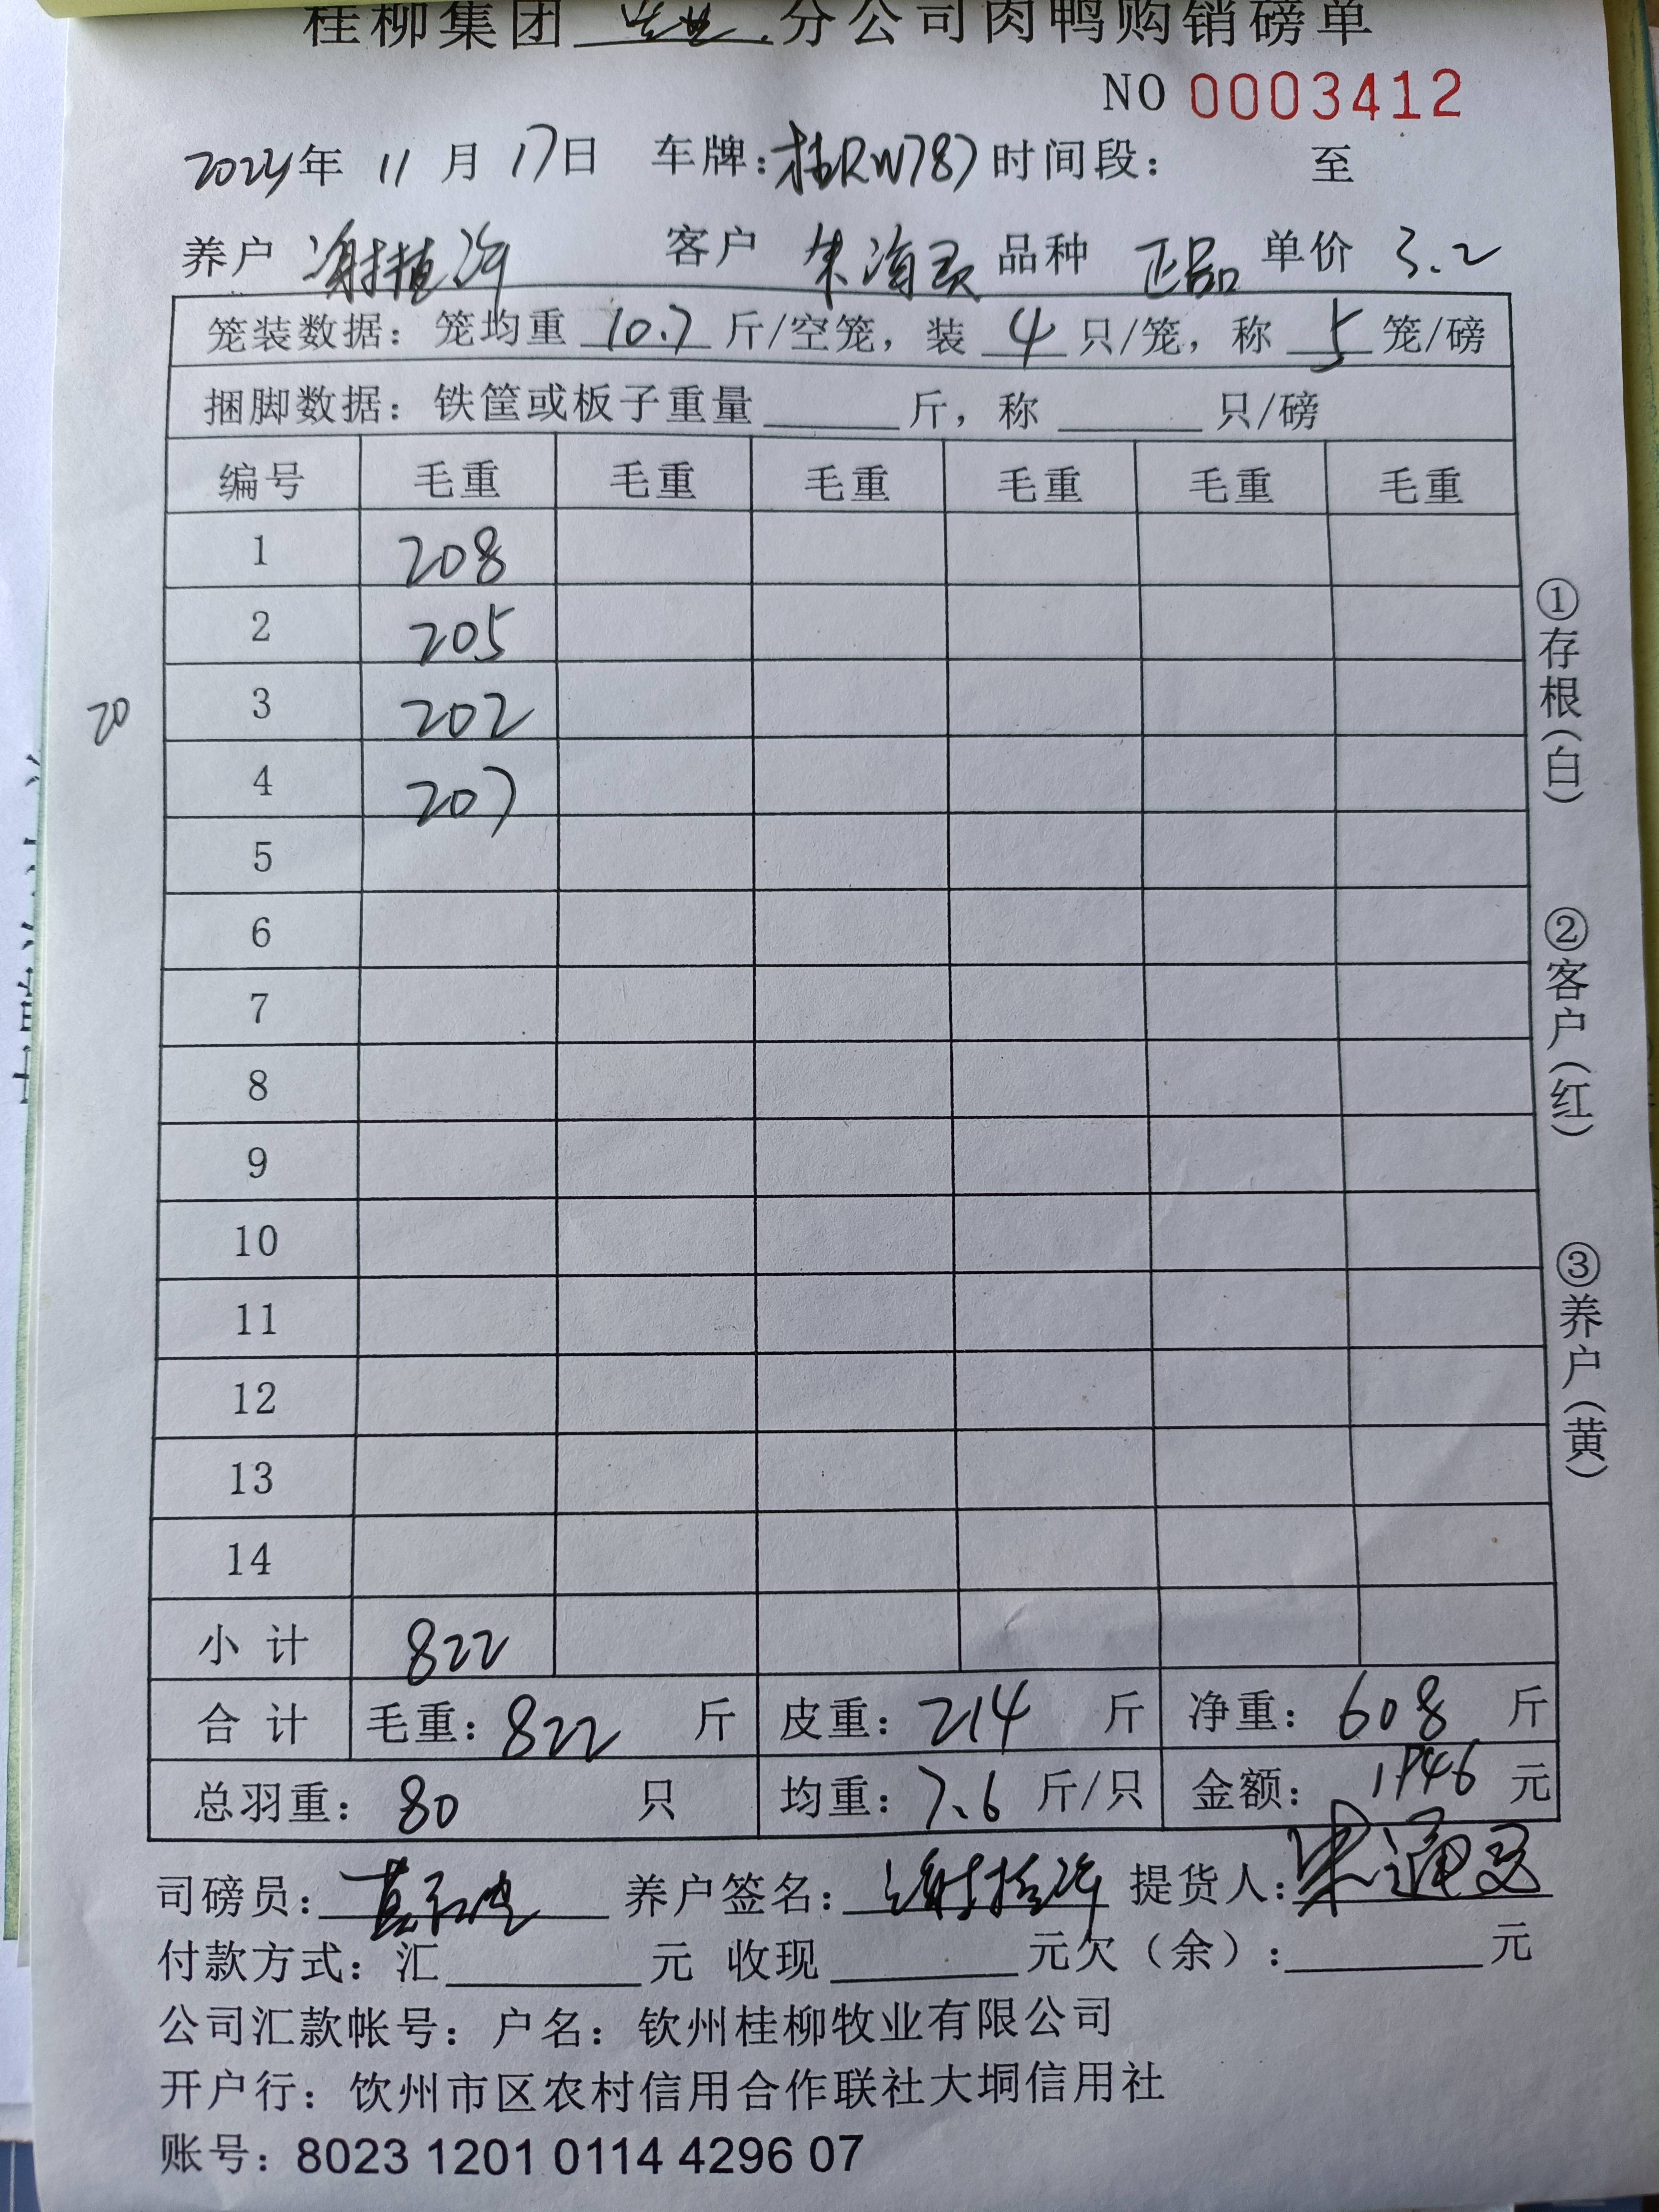 桂柳集团 分公司肉鸭购销磅单
NO 0003412
2024年 11 月 17日 车牌:桂RW787 时间段: 至
养户 谢植 客户 朱海 品种 正品 单价 3.2
笼装数据: 笼均重 10.7 斤/空笼, 装 4 只/笼, 称 5 笼/磅
捆脚数据: 铁筐或板子重量 斤, 称 只/磅
编号 毛重 毛重 毛重 毛重 毛重 毛重
1 208
2 205
20
3 202
4 207
5
6
7
8
9
10
11
12
13
14
小 计 822
合 计 毛重: 822 斤 皮重: 214 斤 净重: 608 斤
总羽重: 80 只 均重: 7.6 斤/只 金额: 1946 元
司磅员: 养户签名: 提货人:
付款方式: 汇 元 收现 元欠(余): 元
公司汇款帐号: 户名: 钦州桂柳牧业有限公司
开户行: 饮州市区农村信用合作联社大垌信用社
账号: 8023 1201 0114 4296 07
①存根(白)
②客户(红)
③养户(黄)